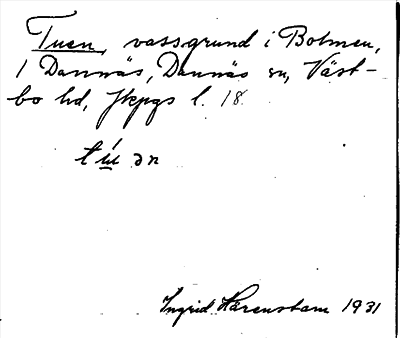 Tuen, vassgrund i Bolmen,
1 Dannäs, Dannäs sn, Väst-
bo hd, Jkpgs l. 18.
túɯ ən
Ingrid Härenstam 1931